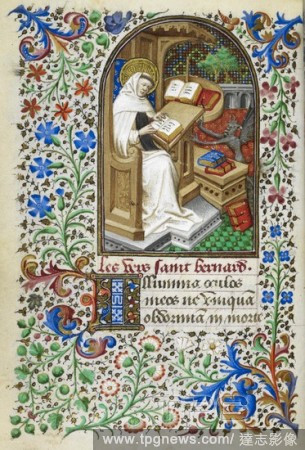 Les vers saint bernard.
Illumina oculos
meos ne vnqua
obdormiam in morte
www.tpgnews.com/ 達志影像